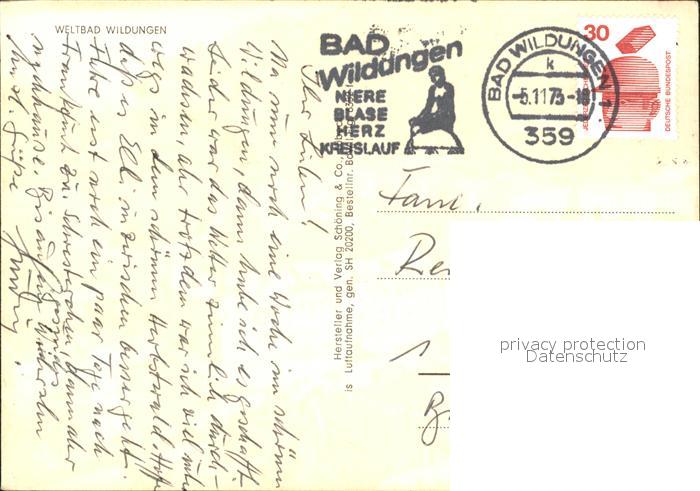 WELTBAD WILDUNGEN
BAD
Wildungen
NIERE
BLASE
HERZ
KREISLAUF
BAD WILDUNGEN 1
k
-5.11.75-18
359
30
DEUTSCHE BUNDESPOST
Hersteller und Verlag Schöning & Co.,
is Luftaufnahme, gen. SH 20200, Bestellnr. Ba
Ihr Lieben!
Na nun noch eine Woche im schönen
Wildungen, dann habe ich es geschafft.
Leider war das Wetter ziemlich durch-
wachsen aber trotzdem war ich viel unter-
wegs in dem schönen Herbstwald. Hoffe
daß es Elli inzwischen besser geht.
Fahre erst noch ein paar Tage nach
Frankfurt zu Schwesterchen, dann aber
nachhause. Bis auf Wiedersehn
herzl. Grüße
Fam.
1
privacy protection
Datenschutz